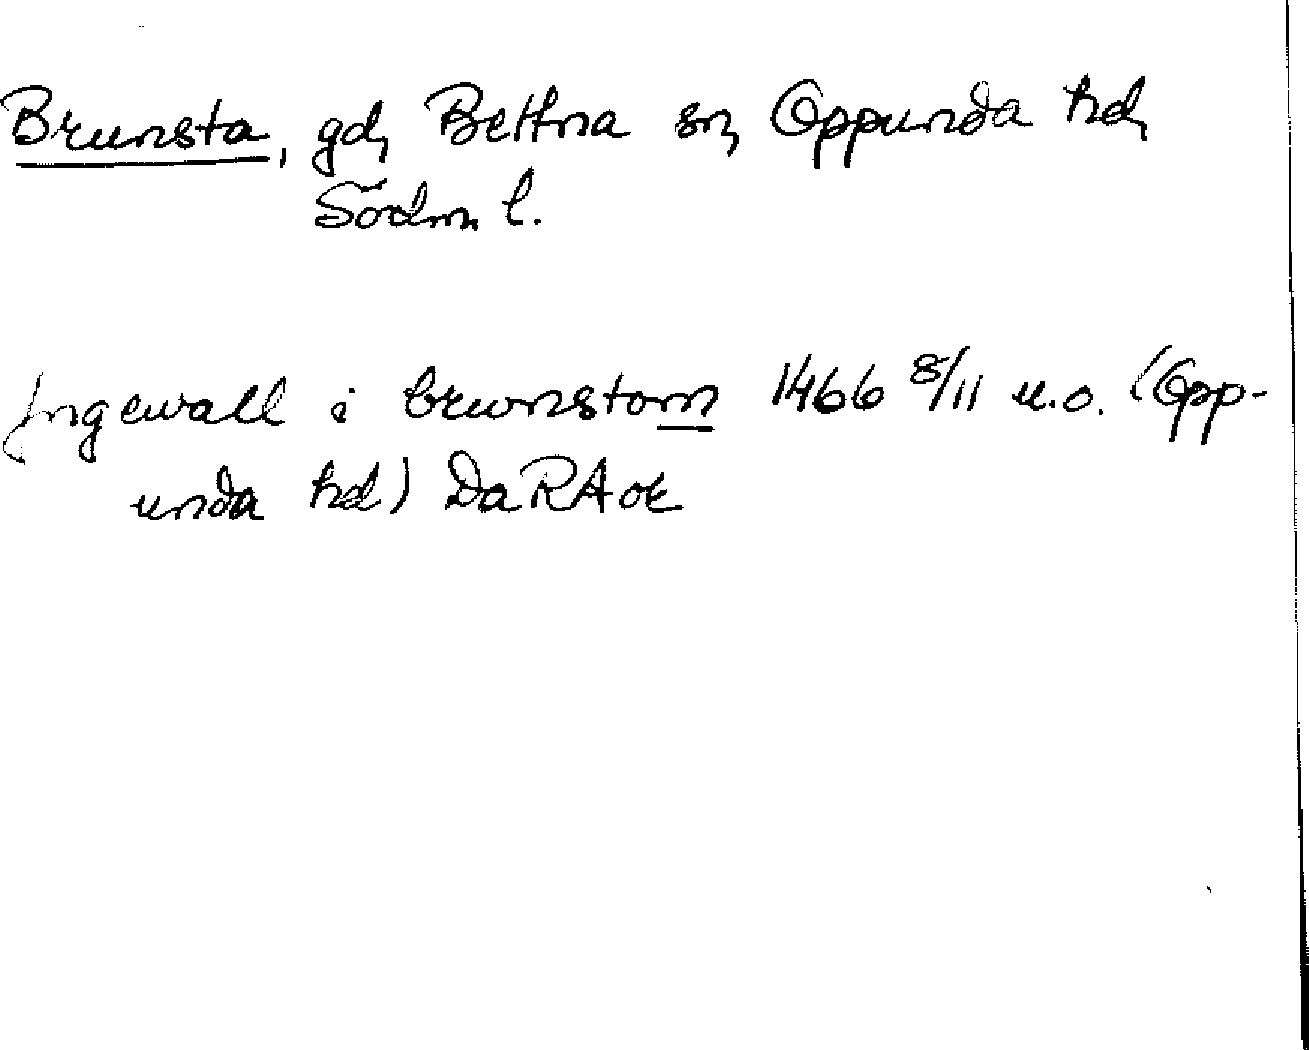 Brunsta, gd, Bettna sn, Oppunda hd,
Södm l.
Jngewall i brwnstom 1466 8/11 u.o. (Opp-
unda hd) DaRAok